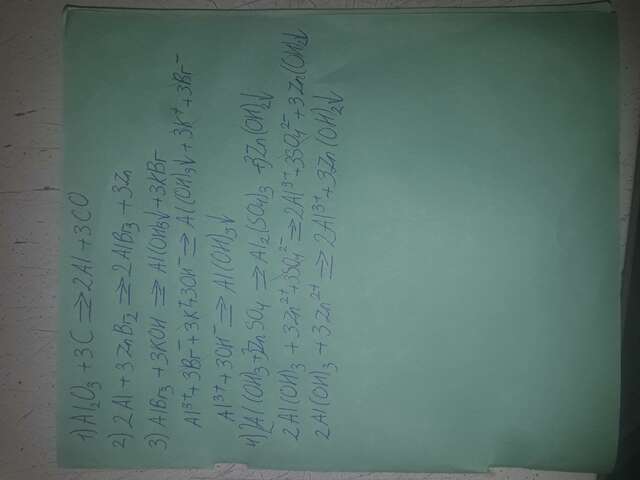 1) Al2O3 + 3C ⇌ 2Al + 3CO
2) 2Al + 3ZnBr2 ⇌ 2AlBr3 + 3Zn
3) AlBr3 + 3KOH ⇌ Al(OH)3↓ + 3KBr
Al³⁺ + 3Br⁻ + 3K⁺ + 3OH⁻ ⇌ Al(OH)3↓ + 3K⁺ + 3Br⁻
Al³⁺ + 3OH⁻ ⇌ Al(OH)3↓
4) 2Al(OH)3 + 3ZnSO4 ⇌ Al2(SO4)3 + 3Zn(OH)2↓
2Al(OH)3 + 3Zn²⁺ + 3SO4²⁻ ⇌ 2Al³⁺ + 3SO4²⁻ + 3Zn(OH)2↓
2Al(OH)3 + 3Zn²⁺ ⇌ 2Al³⁺ + 3Zn(OH)2↓